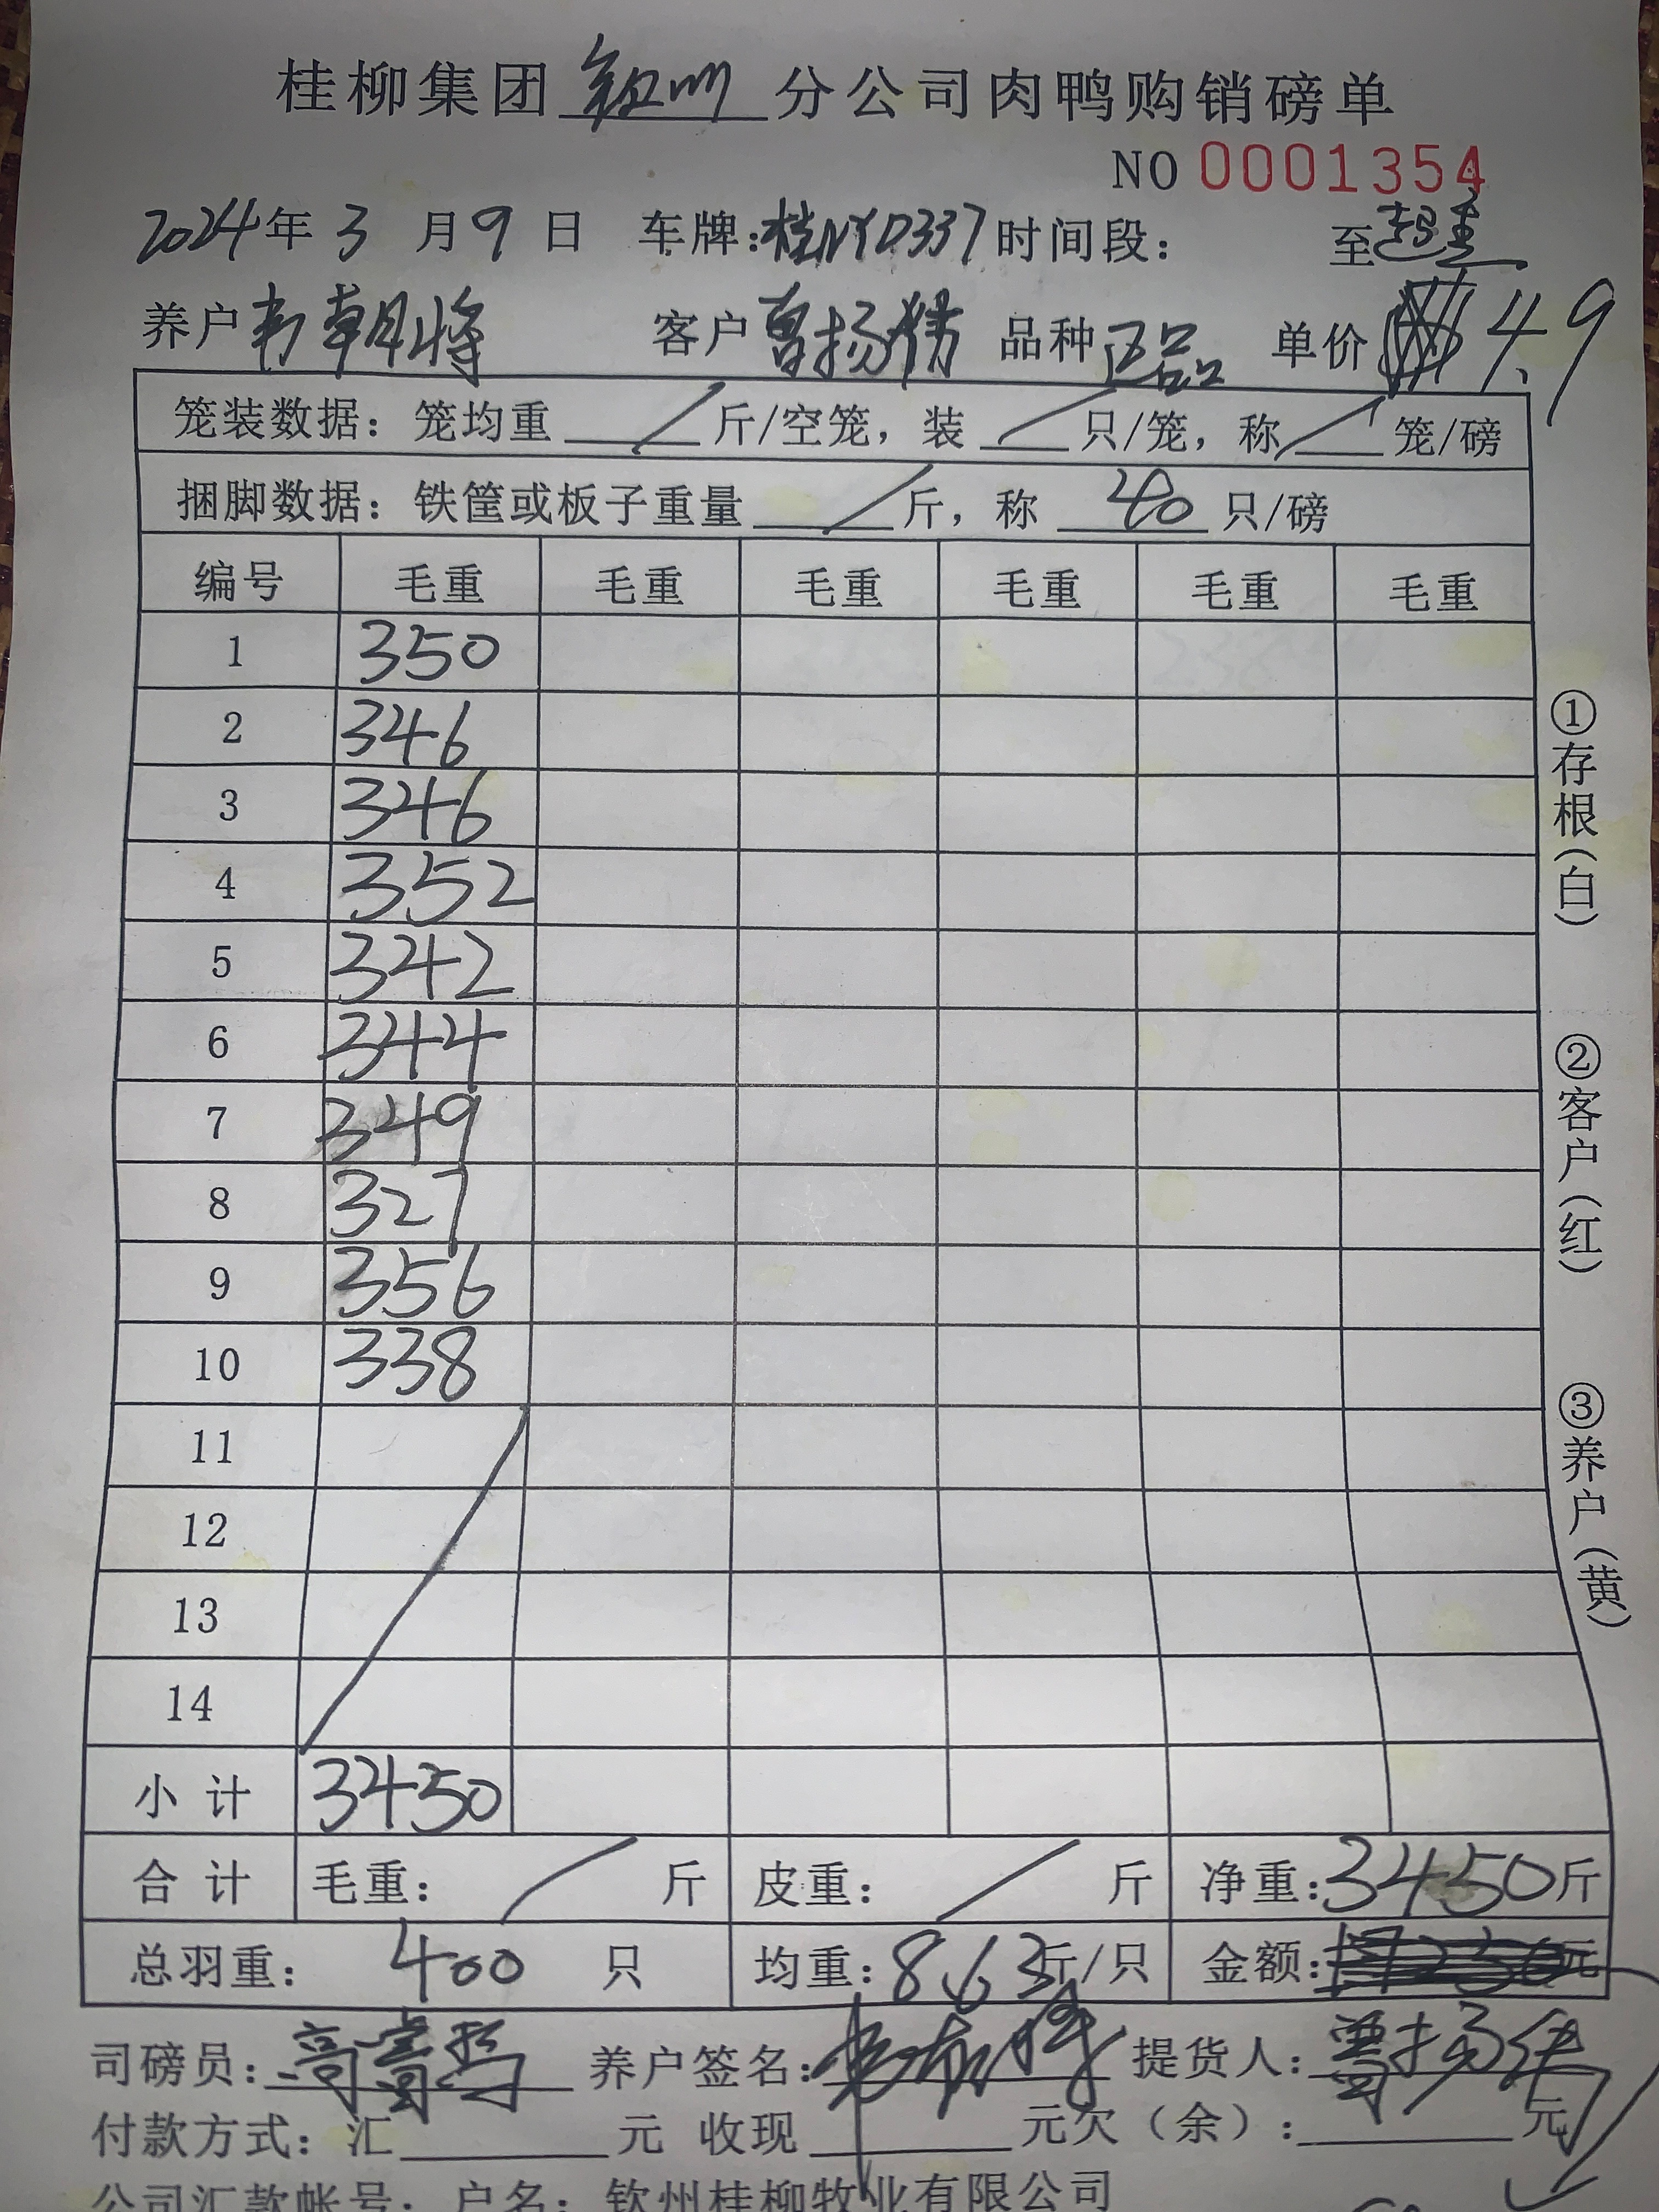 桂柳集团 钦州 分公司肉鸭购销磅单
NO 0001354
2024年 3 月 9 日 车牌:桂NYD337 时间段: 至
养户 韦朝将 客户 曾扬 品种 正品 单价 4.9
笼装数据: 笼均重 / 斤/空笼, 装 / 只/笼, 称 / 笼/磅
捆脚数据: 铁筐或板子重量 / 斤, 称 40 只/磅
编号 毛重 毛重 毛重 毛重 毛重 毛重
1 350
2 346
3 346
4 352
5 342
6 344
7 349
8 327
9 356
10 338
11
12
13
14
小 计 3450
合 计 毛重: / 斤 皮重: / 斤 净重:3450斤
总羽重: 400 只 均重:8.63斤/只 金额: 元
司磅员: 养户签名: 提货人:曾扬
付款方式: 汇 元 收现 元欠(余): 元
公司汇款帐号: 户名: 钦州桂柳牧业有限公司
①存根(白)
②客户(红)
③养户(黄)